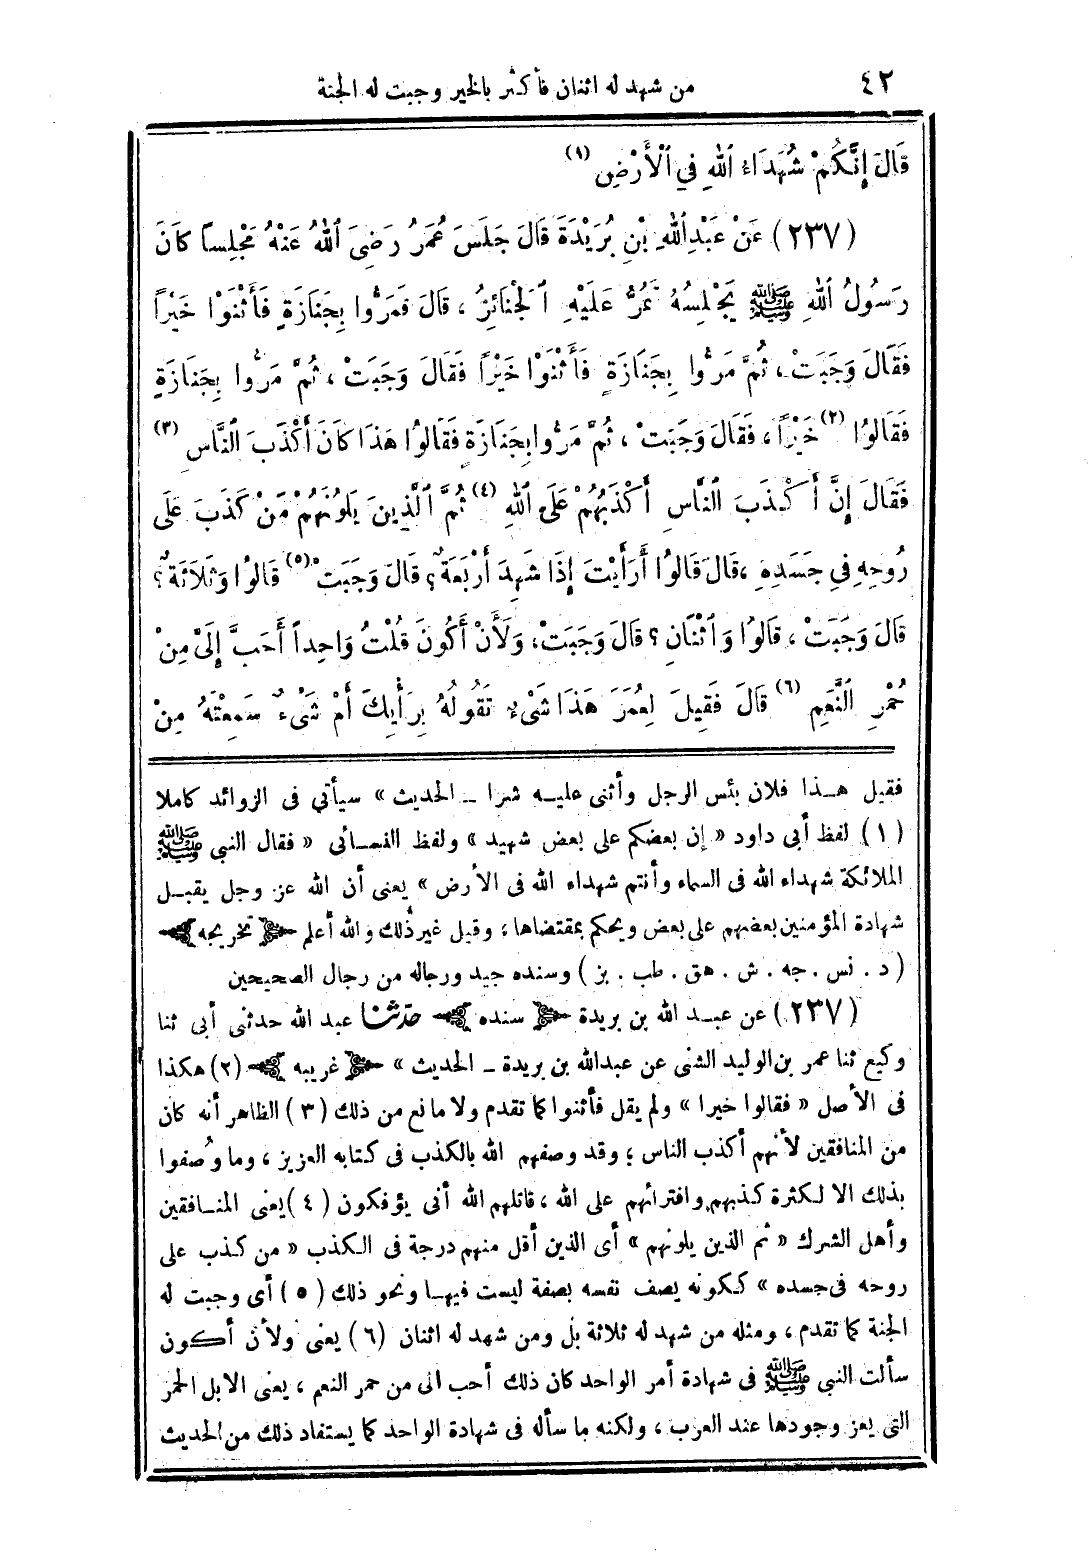 ٤٢
من شهد له اثنان فأكثر بالخير وجبت له الجنة
قَالَ إِنَّكُمْ شُهَدَاءُ ٱللهِ فِي ٱلْأَرْضِ (١)
(٢٣٧) عَنْ عَبْدِ ٱللهِ بْنِ بُرَيْدَةَ قَالَ جَلَسَ عُمَرُ رَضِيَ ٱللهُ عَنْهُ مَجْلِساً كَانَ
رَسُولُ ٱللهِ ﷺ يَجْلِسُهُ تَمُرُّ عَلَيْهِ ٱلْجَنَائِزُ ، قَالَ فَمَرُّوا بِجَنَازَةٍ فَأَثْنَوْا خَيْراً
فَقَالَ وَجَبَتْ ، ثُمَّ مَرُّوا بِجَنَازَةٍ فَأَثْنَوْا خَيْراً فَقَالَ وَجَبَتْ ، ثُمَّ مَرُّوا بِجَنَازَةٍ
فَقَالُوا (٢) خَيْراً ، فَقَالَ وَجَبَتْ ، ثُمَّ مَرُّوا بِجَنَازَةٍ فَقَالُوا هَذَا كَانَ أَكْذَبَ ٱلنَّاسِ (٣)
فَقَالَ إِنَّ أَكْذَبَ ٱلنَّاسِ أَكْذَبُهُمْ عَلَى ٱللهِ (٤) ثُمَّ ٱلَّذِينَ يَلُونَهُمْ مَنْ كَذَبَ عَلَى
رُوحِهِ فِي جَسَدِهِ ، قَالَ قَالُوا أَرَأَيْتَ إِذَا شَهِدَ أَرْبَعَةٌ ؟ قَالَ وَجَبَتْ (٥) قَالُوا وَثَلَاثَةٌ ؟
قَالَ وَجَبَتْ ، قَالُوا وَٱثْنَانِ ؟ قَالَ وَجَبَتْ ، وَلَأَنْ أَكُونَ قُلْتُ وَاحِداً أَحَبَّ إِلَيَّ مِنْ
حُمْرِ ٱلنَّعَمِ (٦) قَالَ فَقِيلَ لِعُمَرَ هَذَا شَيْءٌ تَقُولُهُ بِرَأْيِكَ أَمْ شَيْءٌ سَمِعْتَهُ مِنْ
فقيل هذا فلان بئس الرجل وأثنى عليه شرا ــ الحديث » سيأتي فى الزوائد كاملا
(١) لفظ أبى داود « إن بعضكم على بعض شهيد » ولفظ النسائى « فقال النبى ﷺ
الملائكة شهداء الله فى السماء وأنتم شهداء الله فى الأرض » يعنى أن الله عز وجل يقبل
شهادة المؤمنين بعضهم على بعض ويحكم بمقتضاها ؛ وقيل غير ذلك والله أعلم تخريجه
(د . نس . جه . ش . هق . طب . بز) وسنده جيد ورجاله من رجال الصحيحين
(٢٣٧) عن عبد الله بن بريدة سنده حدّثنا عبد الله حدثنى أبى ثنا
وكيع ثنا عمر بن الوليد الشنى عن عبدالله بن بريدة ــ الحديث » غريبه (٢) هكذا
فى الأصل « فقالوا خيرا » ولم يقل فأثنوا كما تقدم ولا مانع من ذلك (٣) الظاهر أنه كان
من المنافقين لأنهم أكذب الناس ؛ وقد وصفهم الله بالكذب فى كتابه العزيز ، وما وُصفوا
بذلك الا لكثرة كذبهم وافترائهم على الله ، قاتلهم الله أنى يؤفكون (٤) يعنى المنافقين
وأهل الشرك « ثم الذين يلونهم » أى الذين أقل منهم درجة فى الكذب « من كذب على
روحه فى جسده » ككونه يصف نفسه بصفة ليست فيها ونحو ذلك (٥) أى وجبت له
الجنة كما تقدم ، ومثله من شهد له ثلاثة بل ومن شهد له اثنان (٦) يعنى ولأن أكون
سألت النبى ﷺ فى شهادة أمر الواحد كان ذلك أحب الى من حمر النعم ، يعنى الابل الحمر
التى يعز وجودها عند العرب ، ولكنه ما سأله فى شهادة الواحد كما يستفاد ذلك من الحديث